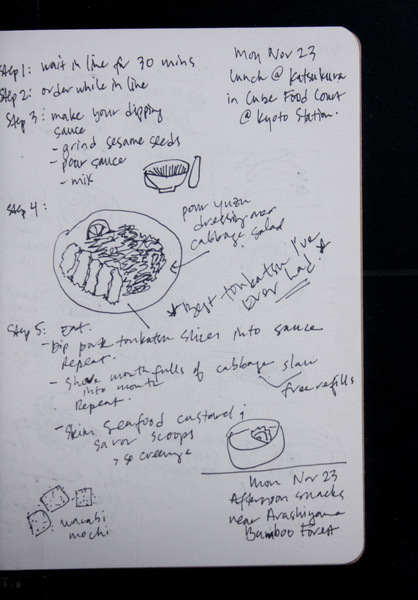 Step 1: wait in line for 30 mins
Step 2: order while in line
Step 3: make your dipping
sauce
- grind sesame seeds
- pour sauce
- mix
Mon Nov 23
Lunch @ Katsukura
in Cube Food Court
@ Kyoto Station.
Step 4:
pour yuzu
dressing over
cabbage salad
★ Best tonkatsu I've
Ever Had. ★
Step 5: Eat.
- Dip pork tonkatsu slices into sauce
Repeat.
- Shove mouthfulls of cabbage slaw
into mouth
Repeat.
free refills
- Skim seafood custard;
savor scoops
> so creamy
Mon Nov 23
Afternoon snacks
near Arashiyama
Bamboo Forest
warabi
mochi